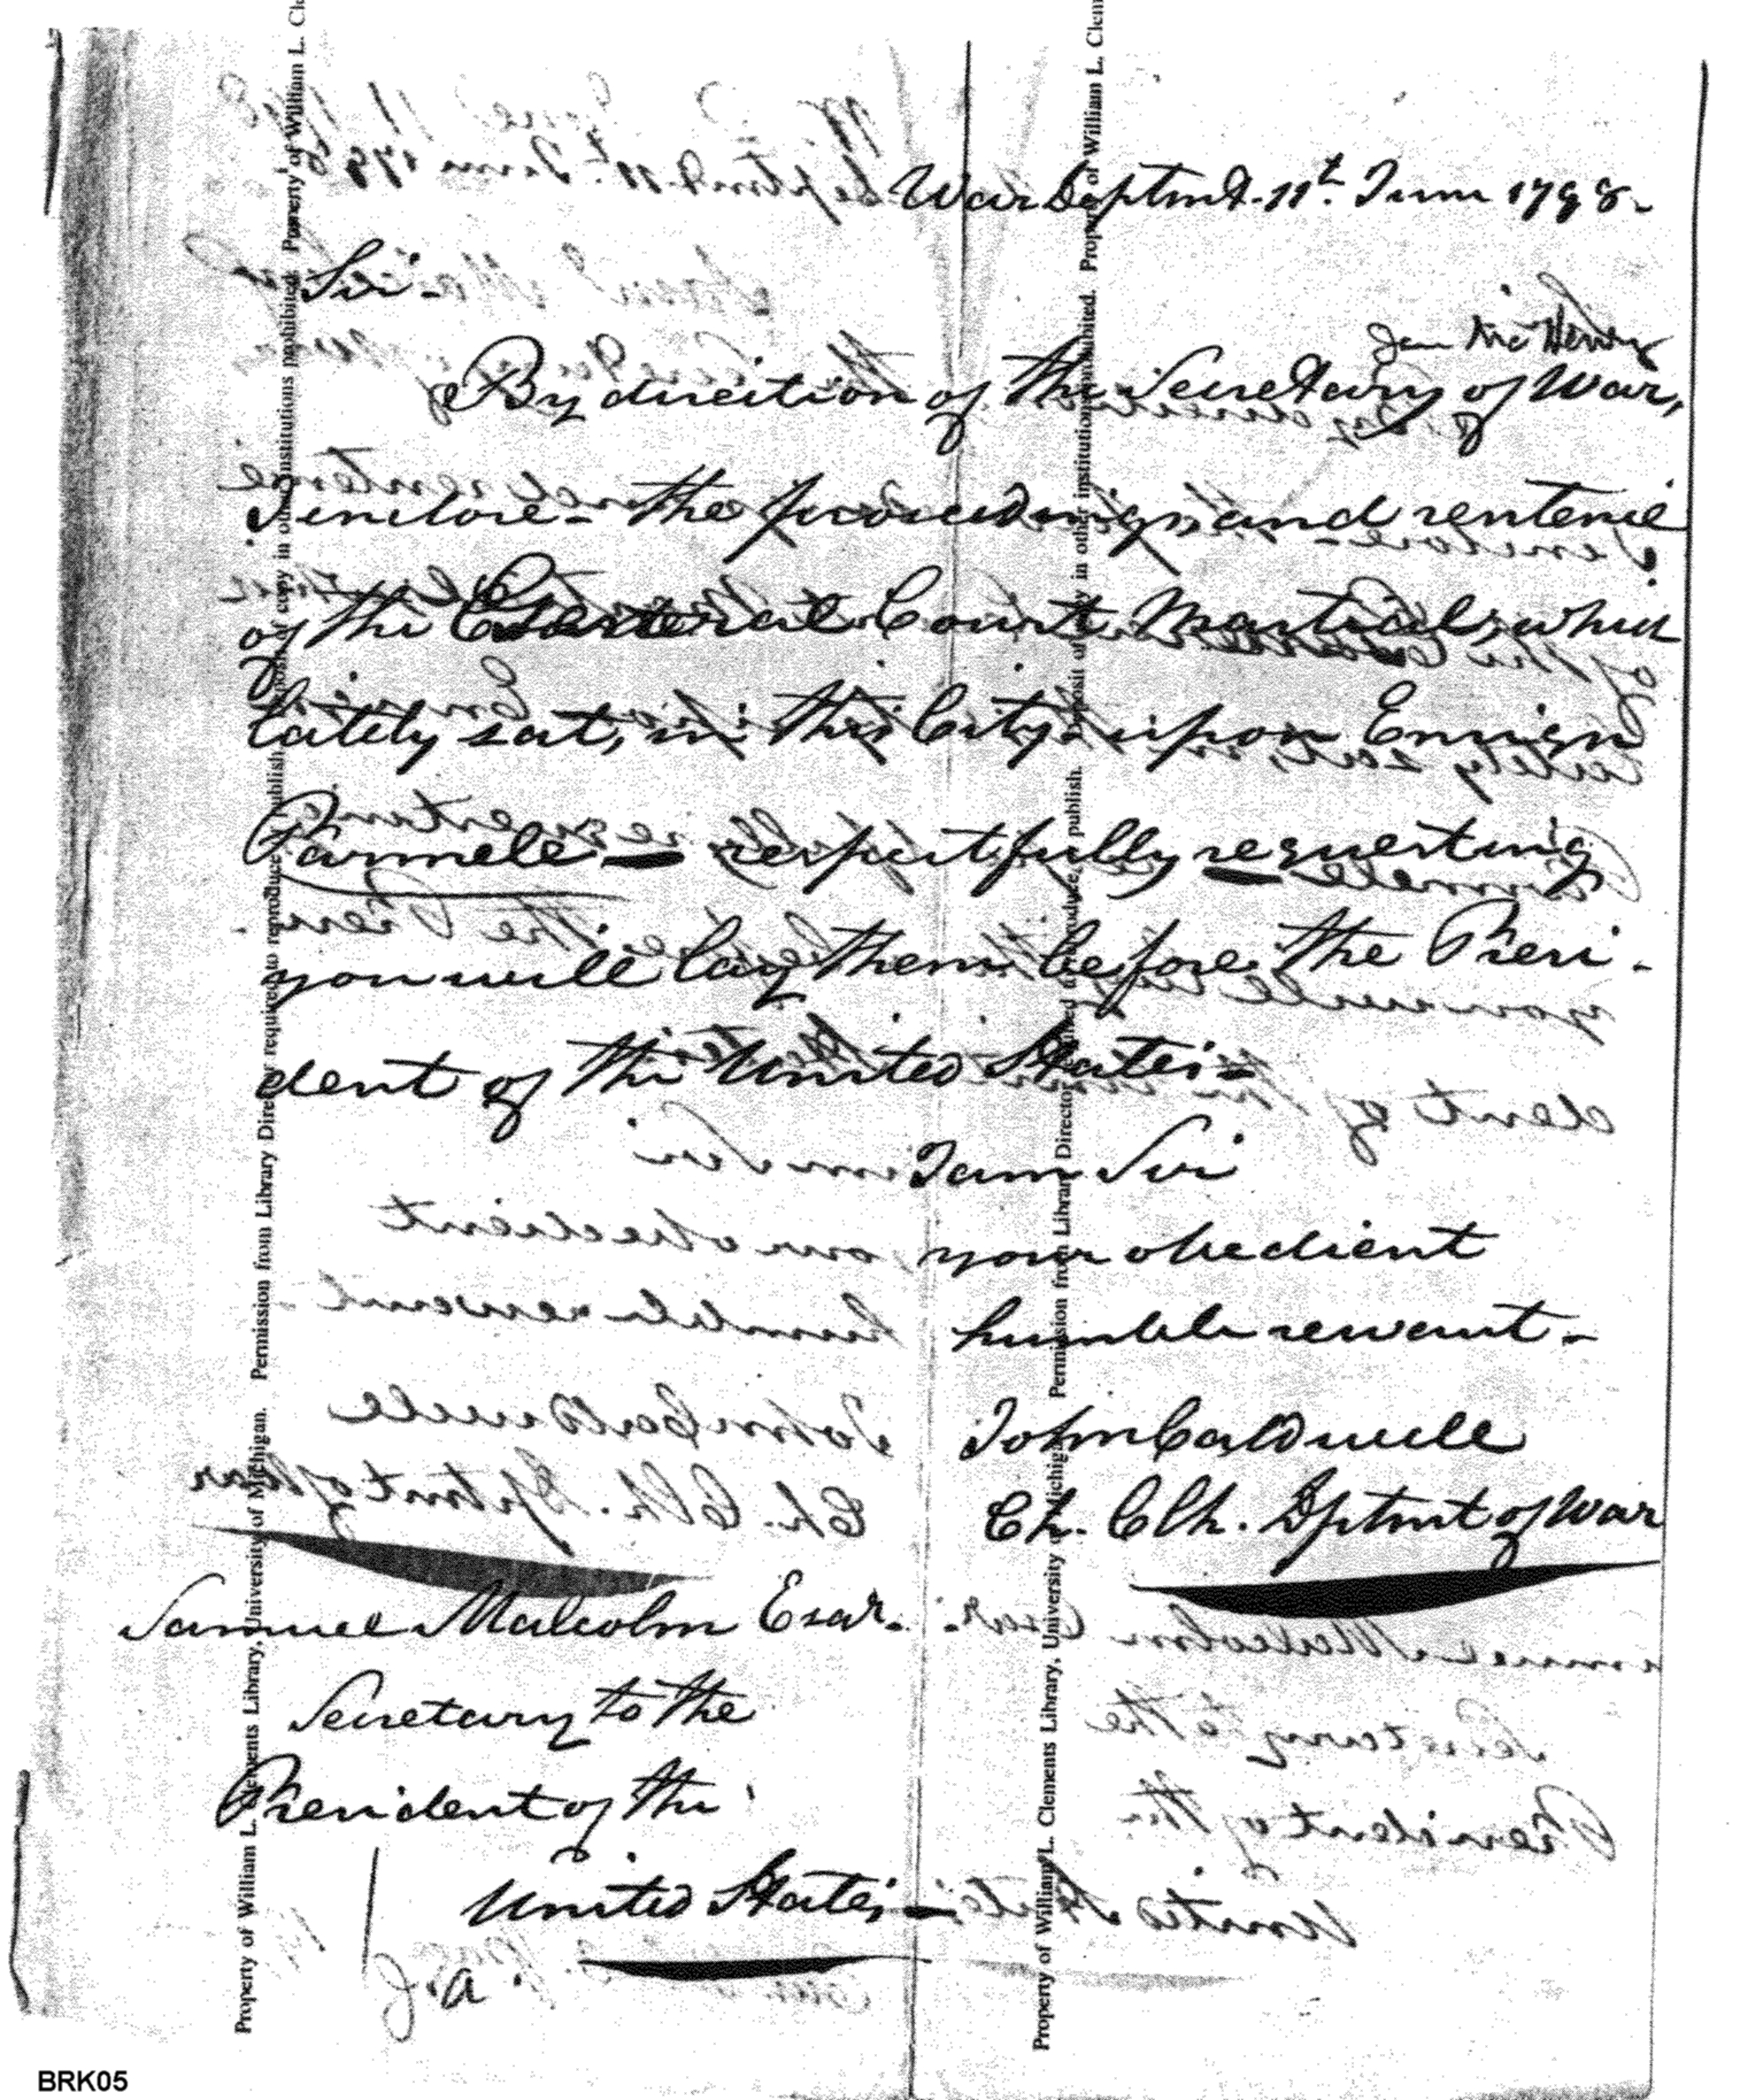 War Deptmt. 11th. June 1798.
Sir.
Jam McHenry
By direction of the Secretary of War,
I enclose - the proceedings, and sentence
of the General Court Martial, which
lately sat, in this City, upon Ensign
Parmele — respectfully requesting
you will lay them before the Presi-
dent of the United States -
I am Sir
your obedient
humble servant -
John Caldwell
Ch. Clk. Dptmt of War
Samuel Malcolm Esqr.
Secretary to the
President of the
United States —
J. a.
Property of William L. Clements Library, University of Michigan. Permission from Library Director required to reproduce publish
copy in other institutions prohibited. Property of William L.
Property of William L. Clements Library, University of Michigan. Permission from Library Director required to reproduce, publish.
Deposit of copy in other institutions prohibited. Property of William L.
BRK05